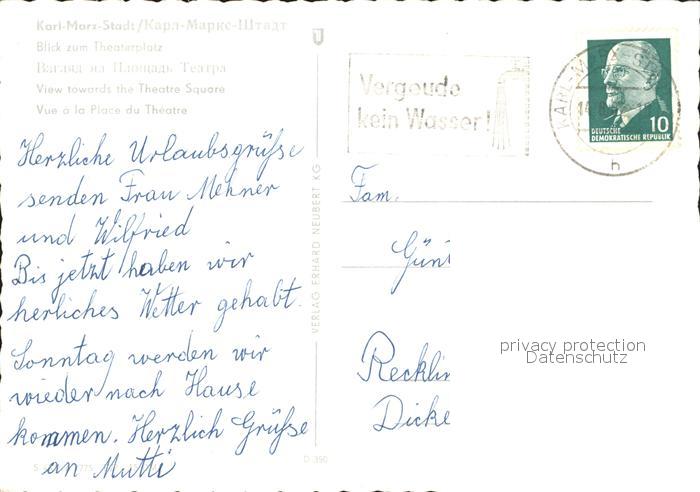 Karl-Marx-Stadt/Карл-Маркс-Штадт
Blick zum Theaterplatz
Взгляд на Площадь Театра
View towards the Theatre Square
Vue à la Place du Théatre
Herzliche Urlaubsgrüße
senden Frau Mehner
und Wilfried
Bis jetzt haben wir
herrliches Wetter gehabt.
Sonntag werden wir
wieder nach Hause
kommen. Herzlich Grüße
an Mutti
VERLAG ERHARD NEUBERT KG
D 390
Vergeude
kein Wasser!
KARL-MARX-STADT
h
10
DEUTSCHE
DEMOKRATISCHE REPUBLIK
Fam.
Günt
Recklin
Dicke
privacy protection
Datenschutz